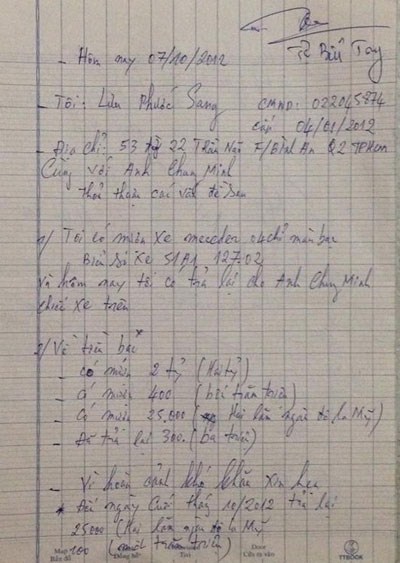 - Hôm nay 07/10/2012
- Tôi: Lưu Phước Sang CMND: 022045874
cấp 04/01/2012
- Địa chỉ: 53 22 Trần Não F/Bình An Q2 TPHCM
Cùng với Anh Chung Minh
thỏa thuận các vấn đề sau
1/ Tôi có mượn xe 04 chỗ màu bạc
Biển số xe 51A1 127.02
Và hôm nay tôi có trả lại cho Anh Chung Minh
chiếc xe trên
2/ Về tiền bạc
- Có mượn 2 tỷ (Hai tỷ)
- Có mượn 400 (bốn trăm triệu)
- Có mượn 25.000 (Hai lăm ngàn đô la Mỹ)
- Đã trả lại 300. (ba triệu)
- Vì hoàn cảnh khó khăn xin hẹn
Đến ngày cuối tháng 10/2012 trả lại
25000 (Hai lăm ngàn đô la Mỹ
100 (một trăm triệu)
Map
Bản đồ
Đồng hồ
Door
Cửa ra vào
TTBOOK